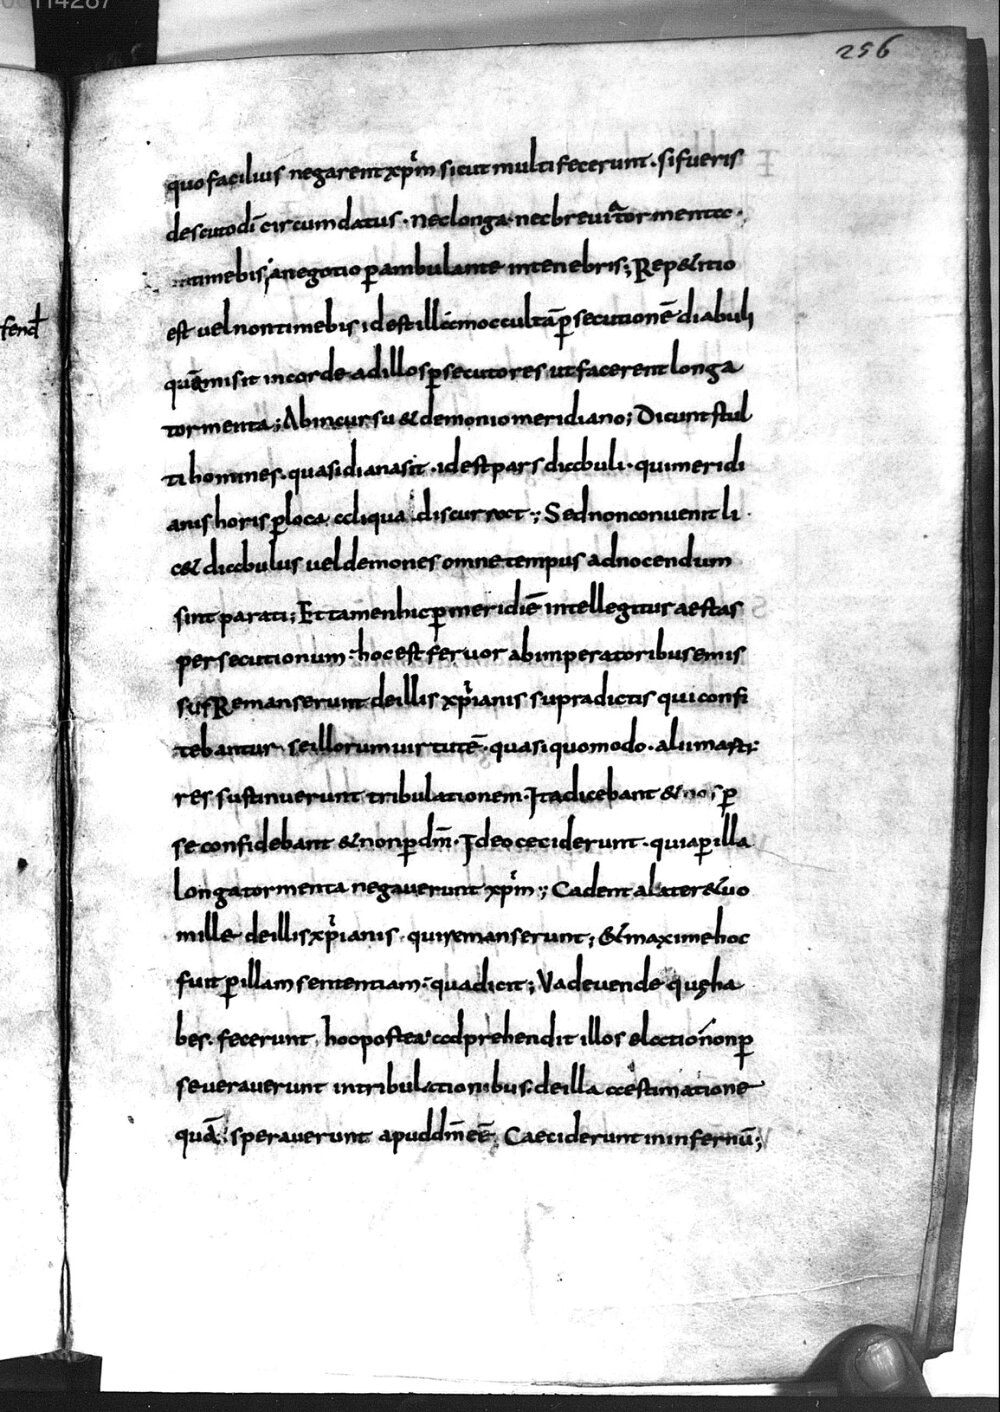 256
quo facilius negarent xp̄m sicut multi fecerunt · si fueris
de scuto dī circumdatus · nec longa · nec breui tormenta ·
timebis; a negotio ꝑambulante in tenebris; Repetitio
fend
est uel non timebis · id est illam occultā ꝑsecutionē diabuli
quē misit in corde ad illos ꝑsecutores ut facerent longa
tormenta; Ab incursu & demonio meridiano; Dicunt stul
ti homines · quasi diana sit · id est pars diabuli · qui meridi
anis horis ꝑ loca aliqua discurrat; Sed non conuenit li
c& diabulus uel demones omne tempus ad nocendum
sint parati; Et tamen hic ꝑ meridiē intellegitur aestas
persecutionum: hoc est feruor ab imperatoribus emis
sus Remanserunt de illis xp̄ianis supradictis qui confi
tebantur se illorum uirtutē · quasi quomodo · alii marti
res sustinuerunt tribulationem · Ita dicebant & nos ꝑ
se confidebant & non ꝑ dm̄ · Ideo ceciderunt · quia ꝑ illa
longa tormenta negauerunt xp̄m; Cadent a latere tuo
mille de illis xp̄ianis · qui remanserunt; & maxime hoc
fuit ꝑ illam sententiam: qua dicit; Vade uende quę ha
bes · fecerunt hoc postea adprehendit illos elatio non ꝑ
seuerauerunt in tribulationibus · de illa aestimatione
quā sperauerunt apud dm̄ eē; Caeciderunt in infernū;